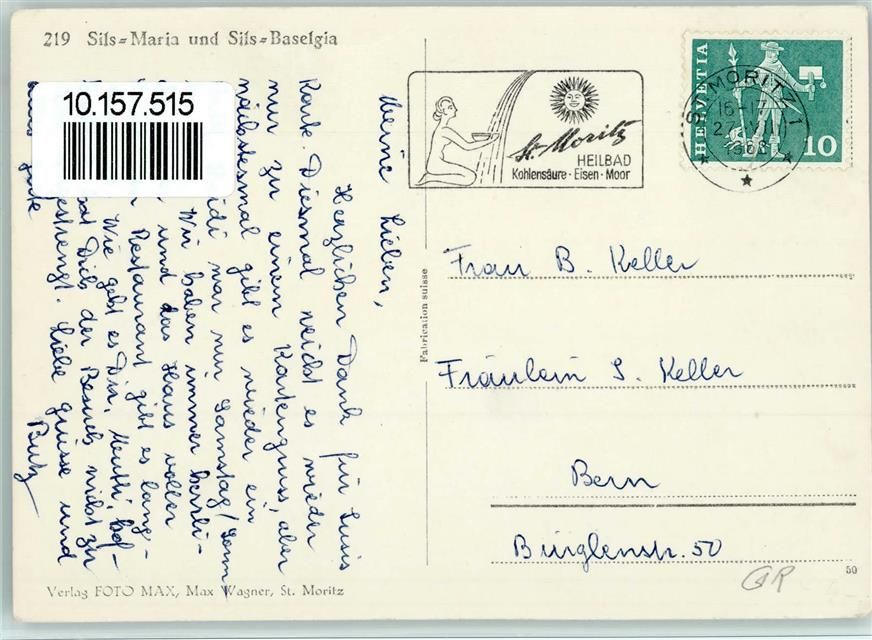 219 Sils=Maria und Sils=Baselgia
10.157.515
St. Moritz
HEILBAD
Kohlensäure · Eisen · Moor
ST. MORITZ 1
16-17
1968
HELVETIA
10
Meine Lieben,
Herzlichen Dank für Susis
Karte. Diesmal reicht es wieder
nur zu einem Kartengruss, aber
nächstesmal gibt es wieder ein
war nur Samstag/Sonn
Wir haben immer herrli-
und das Haus voller
Restaurant gibt es lang-
Wie geht es Dir, Mutti, hof-
hat Dich der Besuch nicht zu
Liebe Grüsse und
gute
Butz
Fabrication suisse
Frau B. Keller
Fräulein S. Keller
Bern
Bürglenstr. 50
GR
50
Verlag FOTO MAX, Max Wagner, St. Moritz